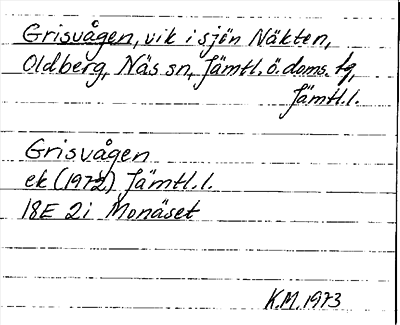 Grisvågen, vik i sjön Näkten,
Oldberg, Näs sn, Jämtl. ö. doms. tg,
Jämtl. l.
Grisvågen
ek (1972) Jämtl. l.
18E 2i Monäset
K.M. 1973